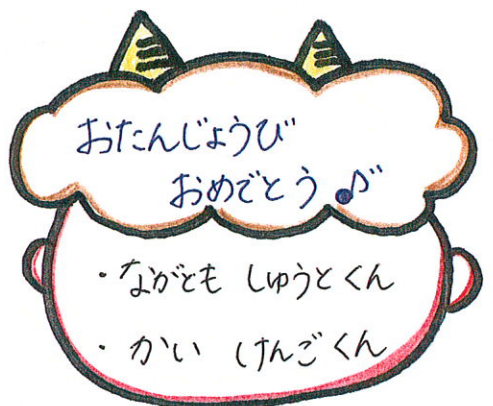 おたんじょうび
おめでとう♪
・ながとも しゅうとくん
・かい けんごくん